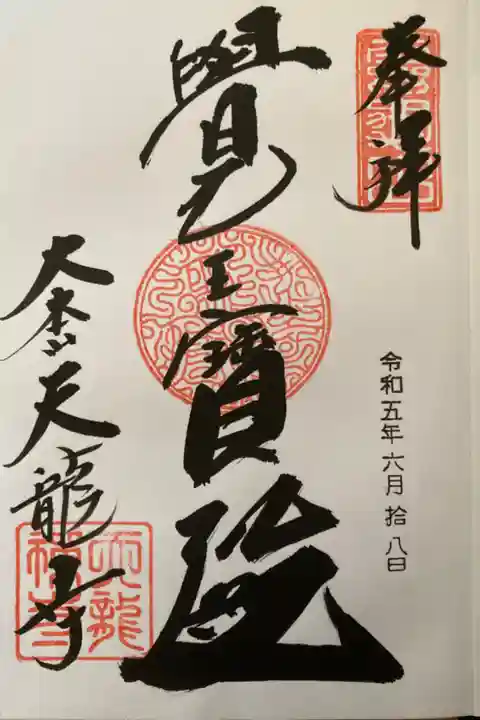 奉拝
令和五年六月拾八日
覺王寶殿
大本山天龍寺
天龍禅寺